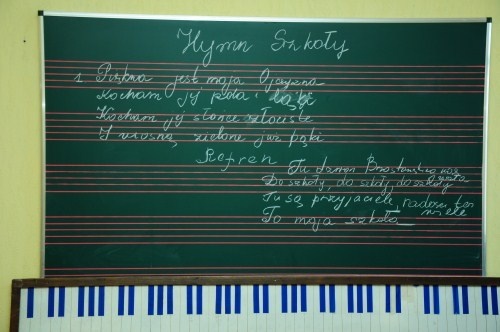 Hymn Szkoły
1. Piękna jest moja Ojczyzna
Kocham jej pola i łąki
Kocham jej słońce złociste
I wiosną zielone już pąki
Refren
Tu dzwon nas
Do szkoły, do szkoły, do szkoły
Tu są przyjaciele, radości tu wiele
To moja szkoła